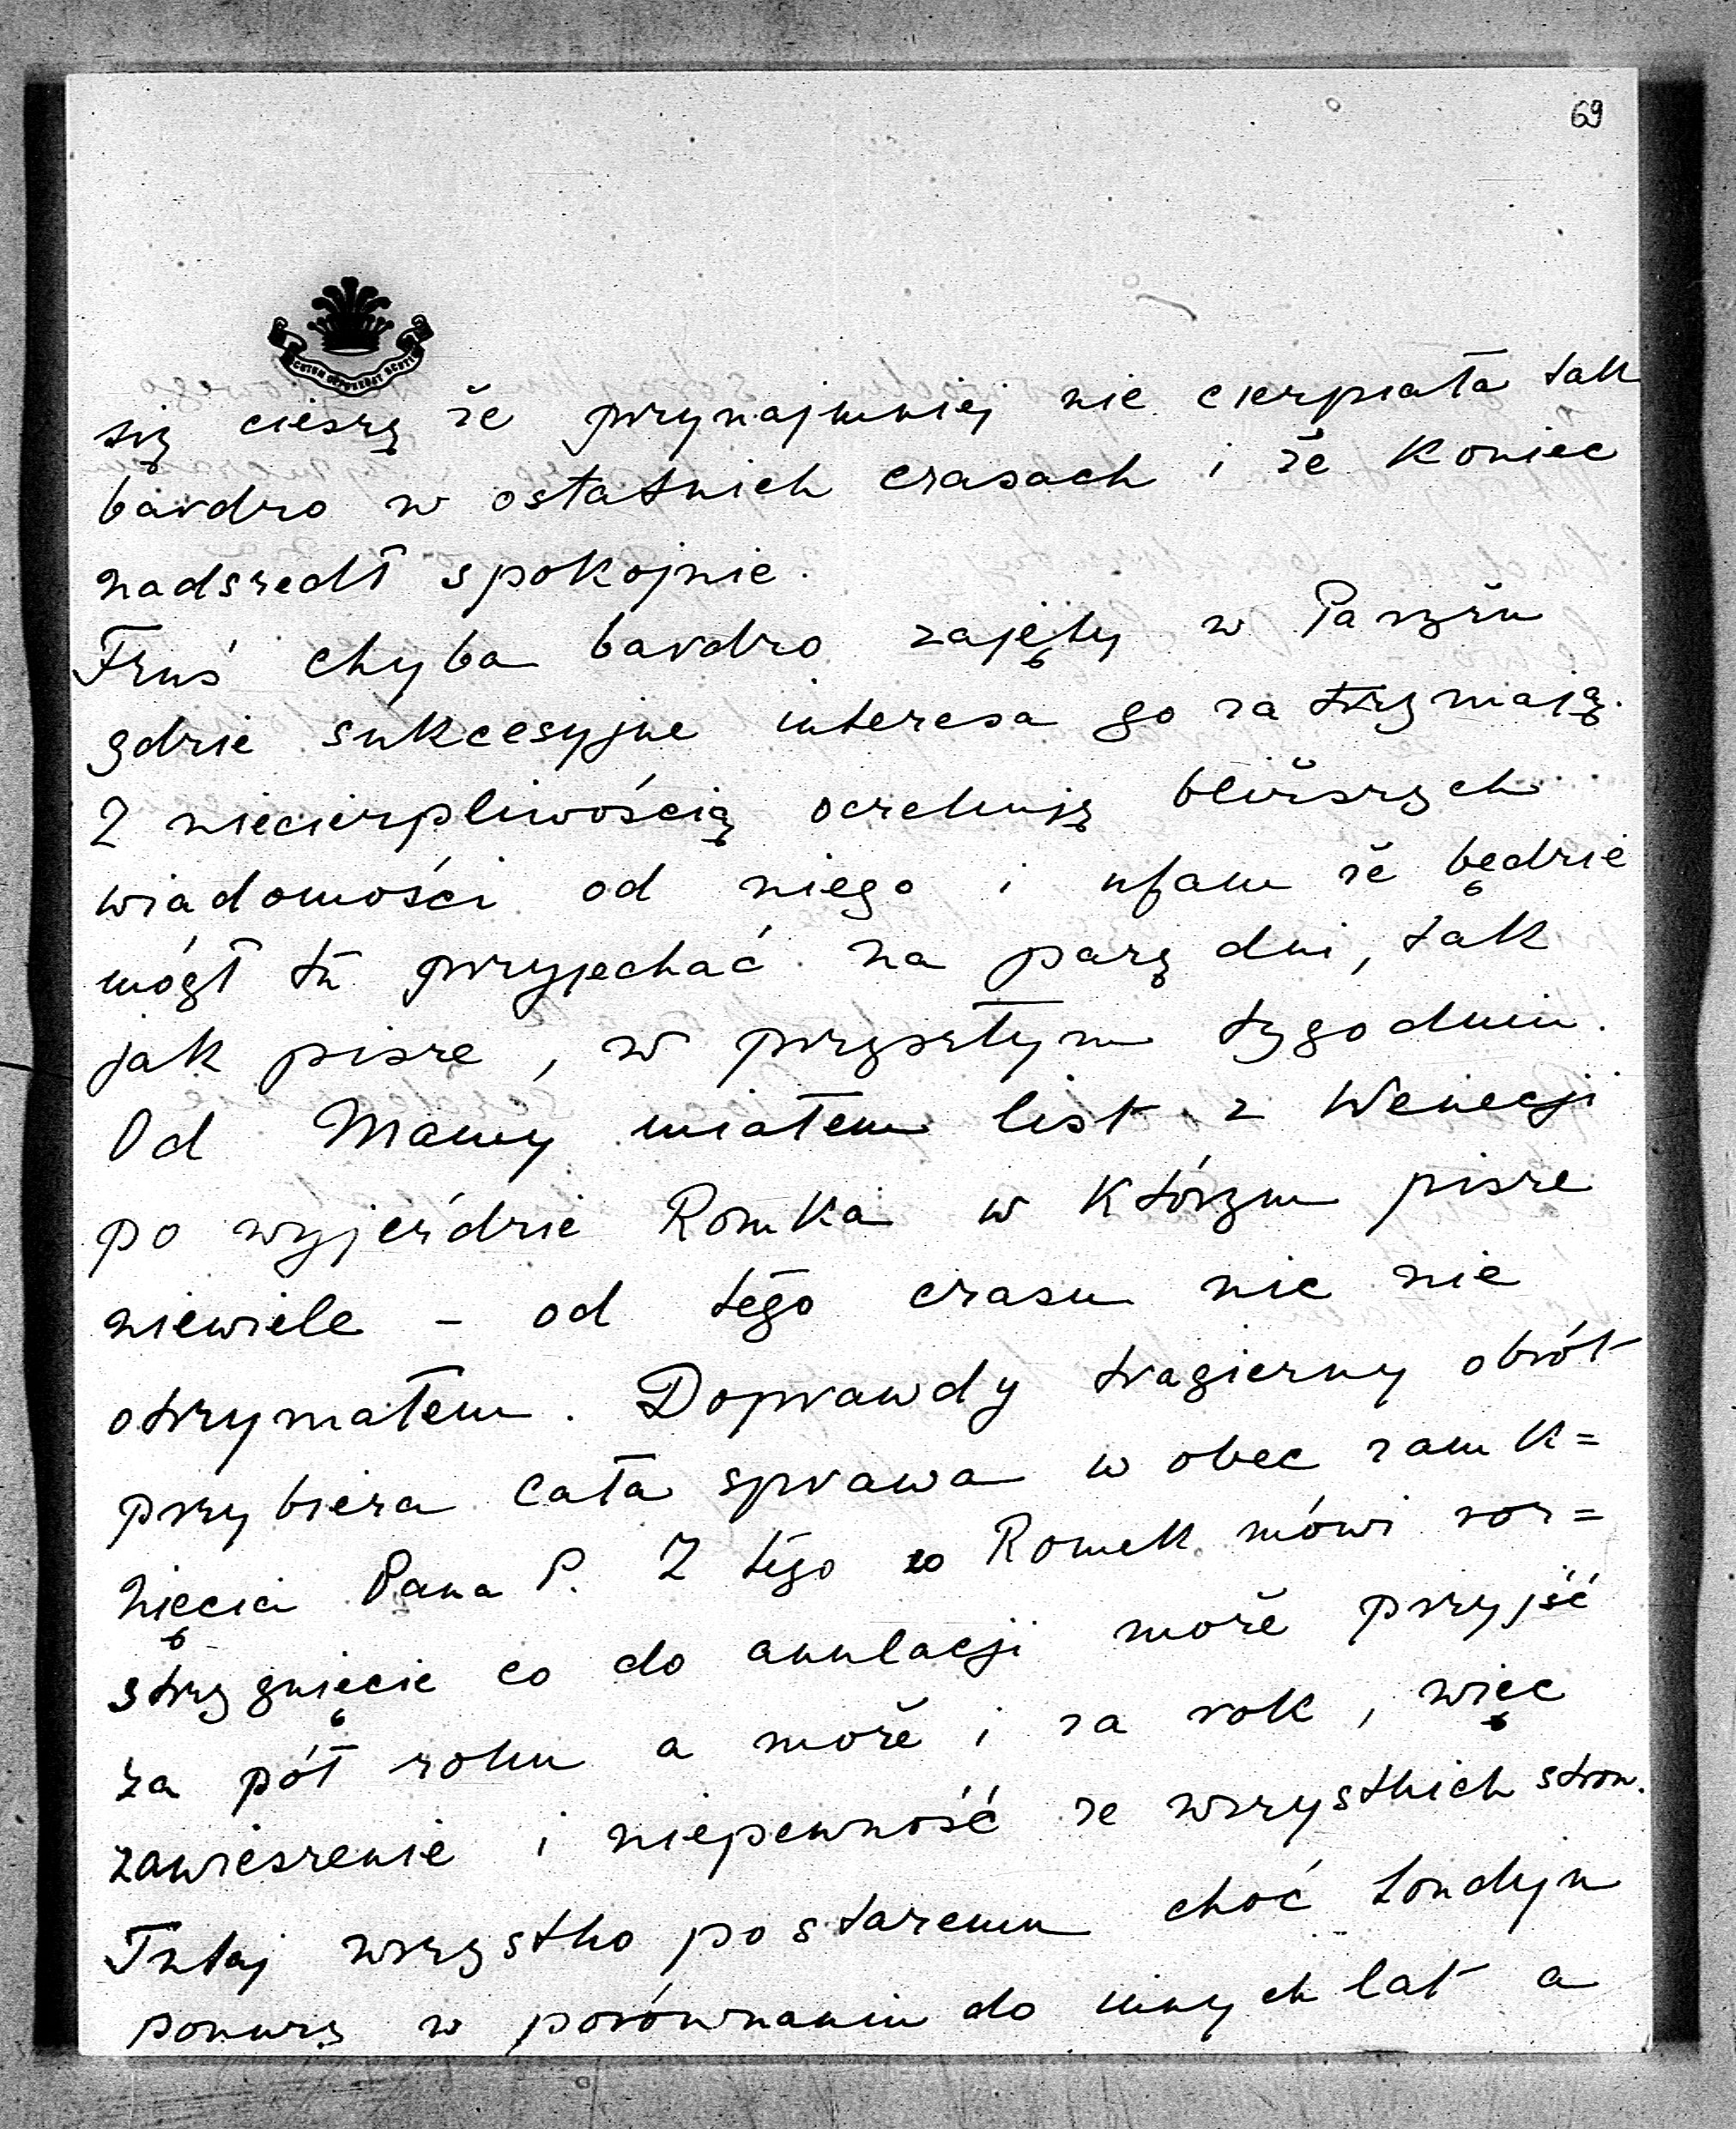 69
się cieszę że przynajmniej nie cierpiała tak
bardzo w ostatnich czasach i że koniec
nadszedł spokojnie.
Fruś chyba bardzo zajęty w Paryżu
gdzie sukcesyjne interesa go za trzymają.
Z niecierpliwością oczekuję bliższych
wiadomości od niego i ufam że będzie
mógł tu przyjechać na parę dni, tak
jak pisze, w przyszłym tygodniu.
Od Mamy miałem list z Wenecji
po wyjeździe Romka w którym pisze
niewiele – od tego czasu nic nie
otrzymałem. Doprawdy tragiczny obrót
przybiera cała sprawa wobec zamk=
nięcia Pana P. Z tego co Romek mówi roz=
strzygnięcie co do anulacji może przyjść
za pół roku a może i za rok, więc
zawieszenie i niepewność ze wszystkich stron.
Tutaj wszystko po staremu choć Londyn
ponury w porównaniu do innych lat a